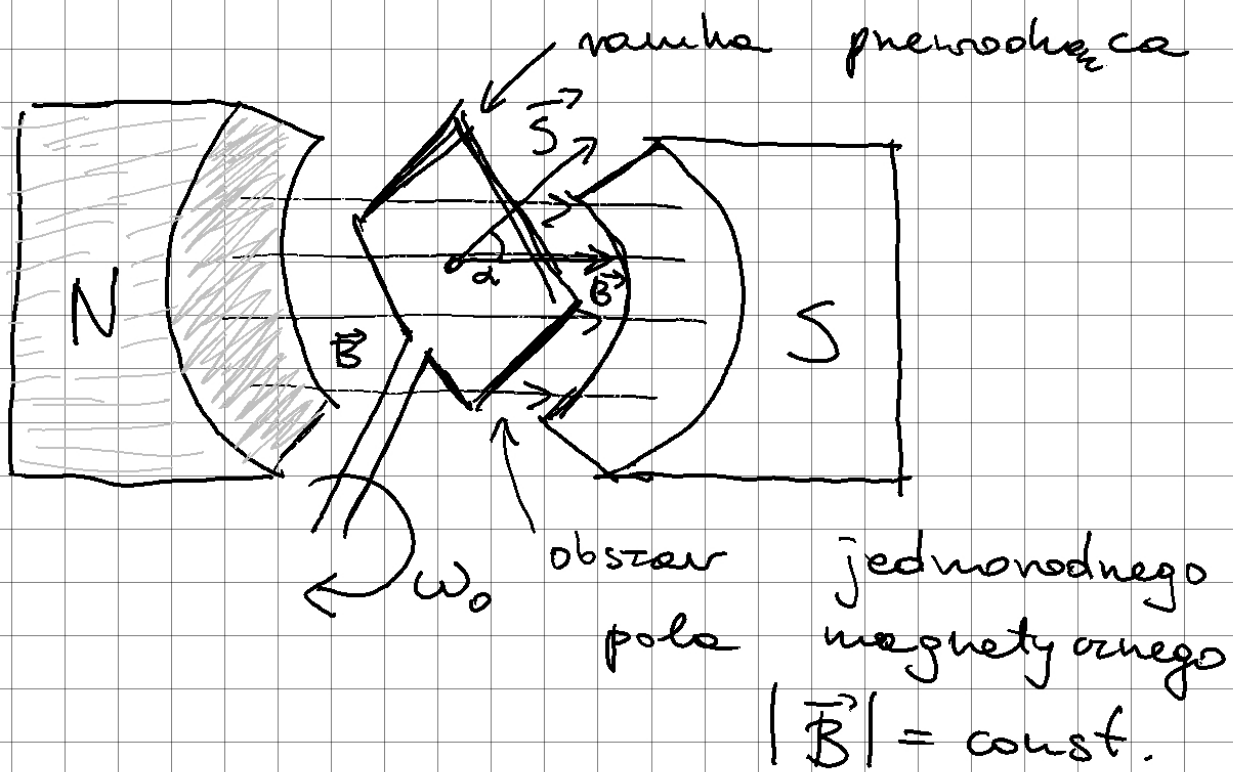 ramka przewodząca
S⃗
N
α
B⃗
B⃗
S
ω₀
obszar jednorodnego
pola magnetycznego
|B⃗| = const.